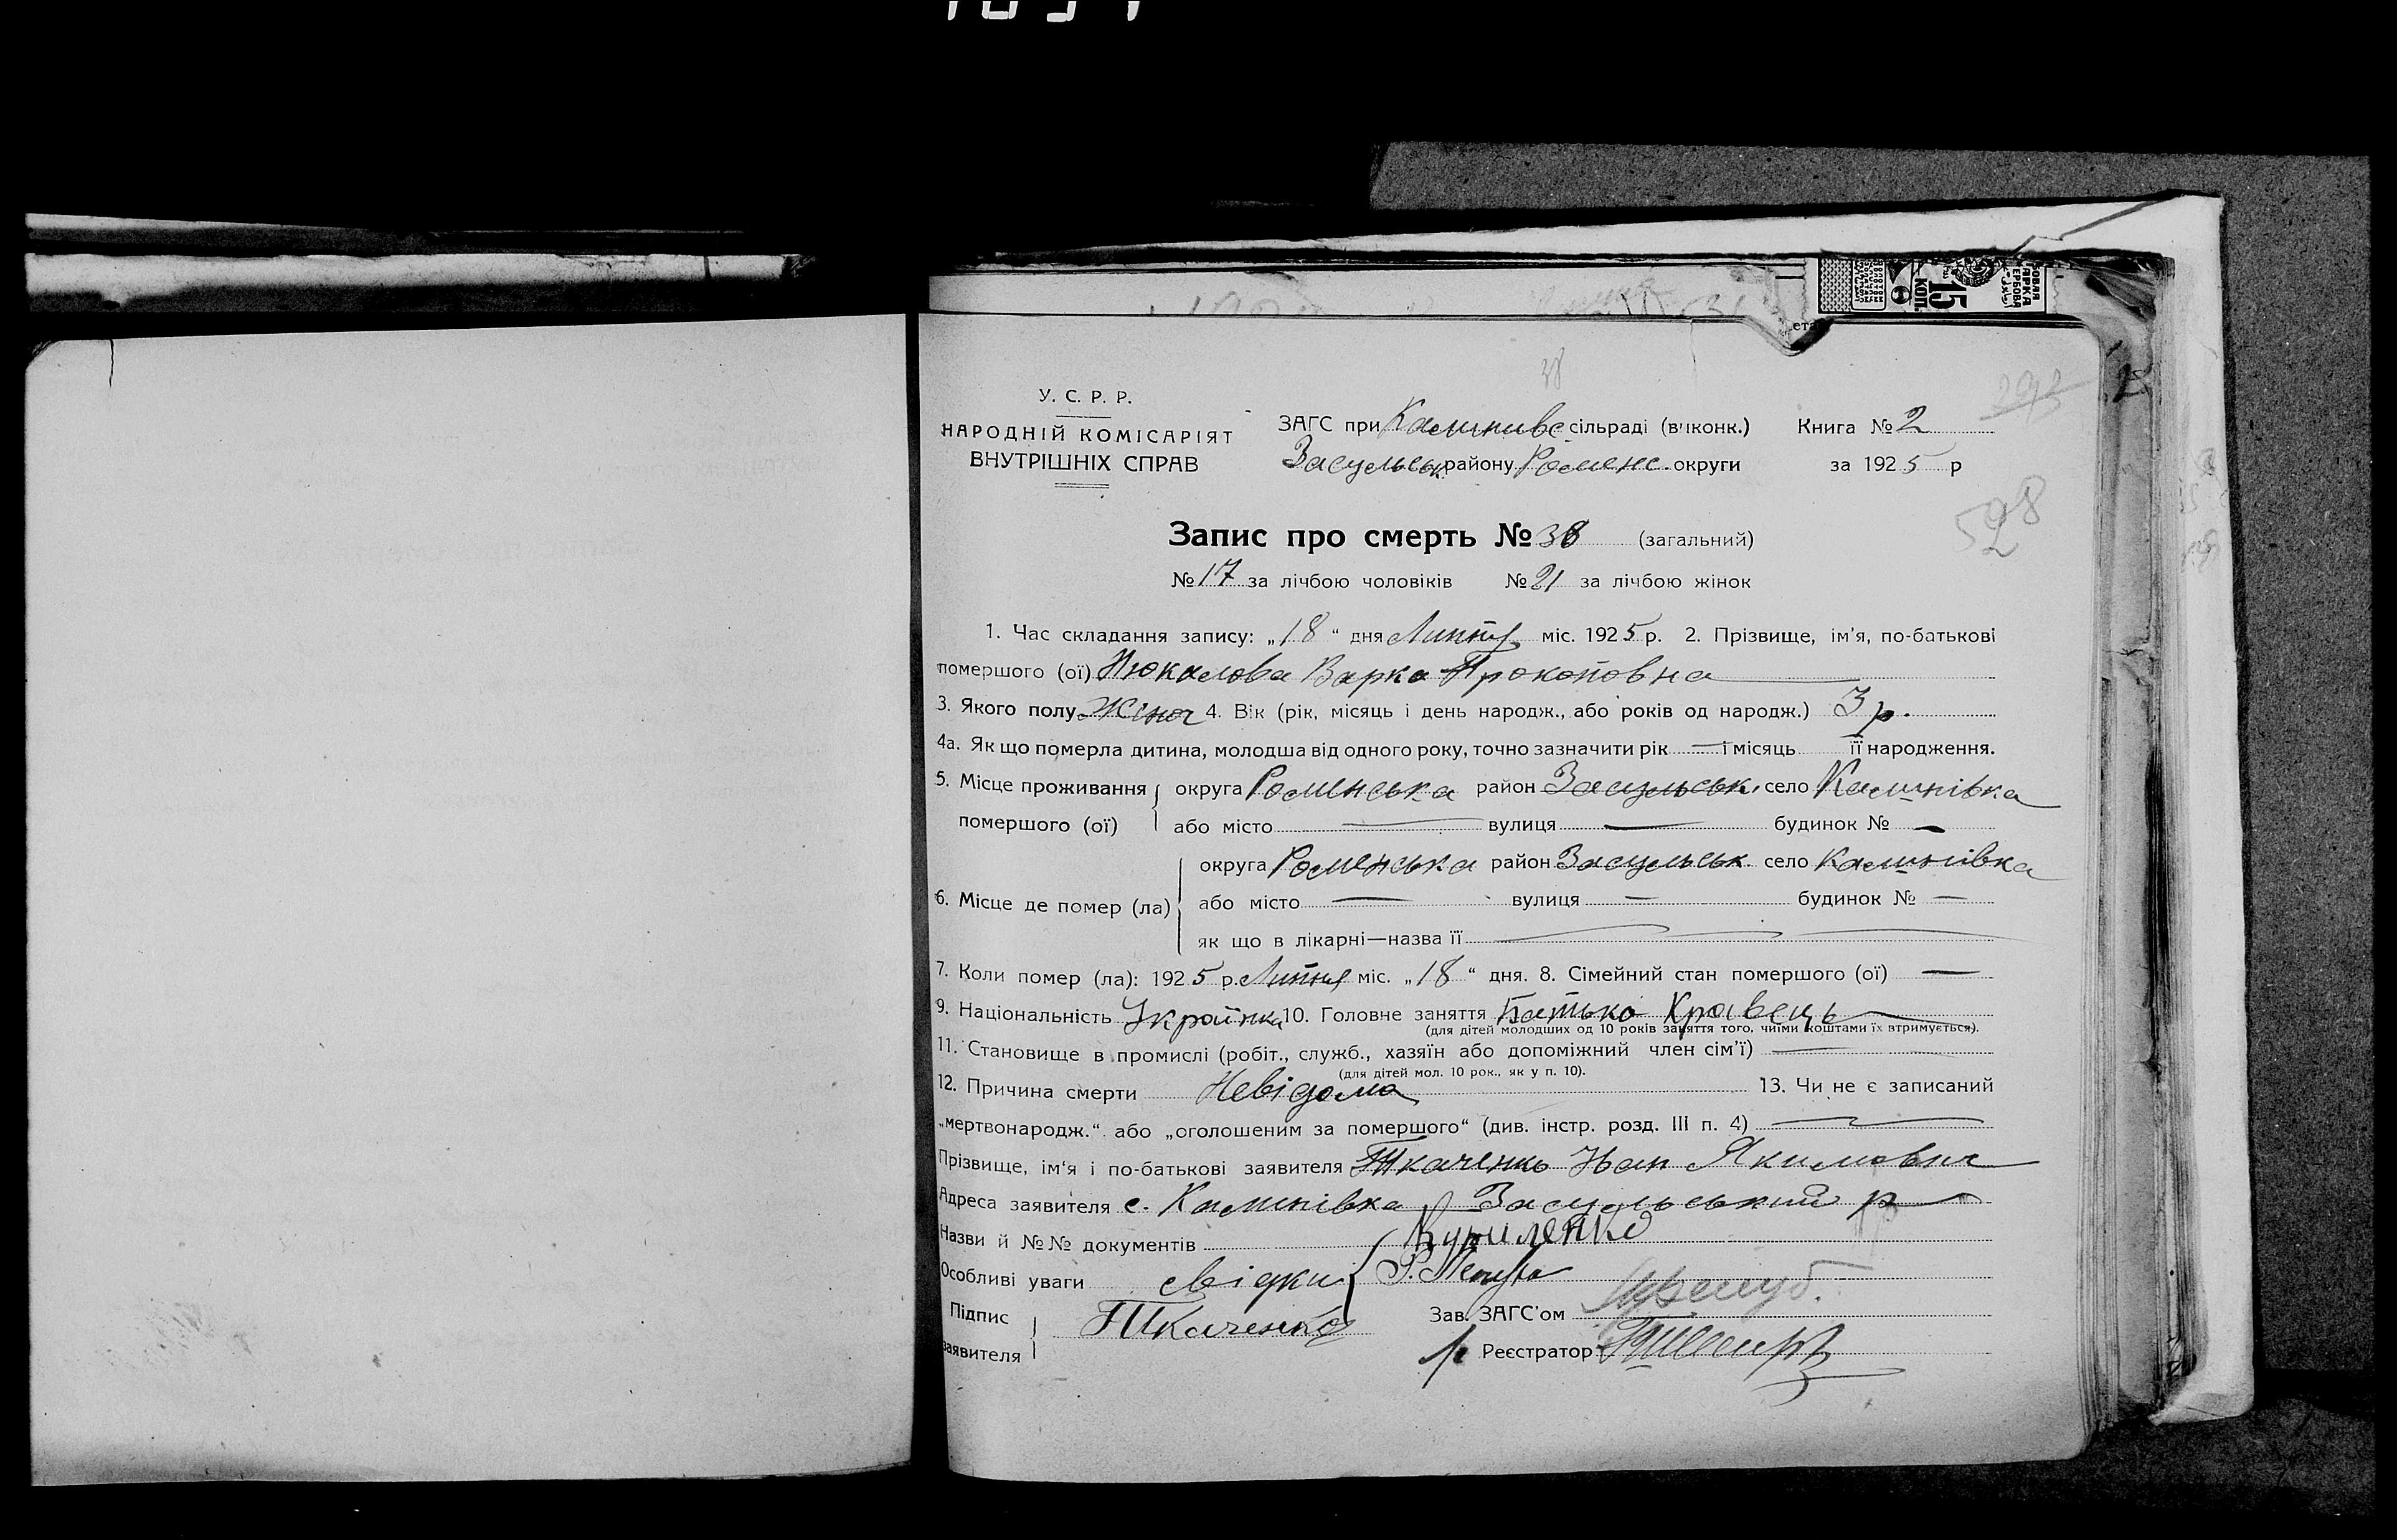 У. С. Р. Р.
НАРОДНІЙ КОМІСАРІЯТ
ВНУТРІШНІХ СПРАВ
38
ЗАГС при Каминивс сільраді (виконк.) Книга № 2
Засульськ району Роменс. округи за 1925 р
Запис про смерть № 38 (загальний)
№ 17 за лічбою чоловіків № 21 за лічбою жінок
1. Час складання запису: „18“ дня Липня міс. 1925 р. 2. Прізвище, ім'я, по-батькові
помершого (ої) Варка Прокоповна
3. Якого полу Жіноч 4. Вік (рік, місяць і день народж., або років од народж.) 3 р.
4а. Як що померла дитина, молодша від одного року, точно зазначити рік — і місяць її народження.
5. Місце проживання округа Роменська район Засульськ. село Камінівка
помершого (ої) або місто — вулиця — будинок № —
округа Роменська район Засульськ село Камінівка
6. Місце де помер (ла) або місто — вулиця — будинок № —
як що в лікарні—назва її
7. Коли помер (ла): 1925 р. Липня міс. „18“ дня. 8. Сімейний стан помершого (ої) —
9. Національність Українка 10. Головне заняття Батько Кравець
(для дітей молодших од 10 років заняття того, чиїми коштами їх втримується).
11. Становище в промислі (робіт., служб., хазяїн або допоміжний член сім'ї) —
(для дітей мол. 10 рок., як у п. 10).
12. Причина смерти Невідома 13. Чи не є записаний
„мертвонародж.“ або „оголошеним за помершого“ (див. інстр. розд. III п. 4) —
Прізвище, ім'я і по-батькові заявителя Ткаченко Іван Якимович
Адреса заявителя с. Камінівка Засульський р
Назви й №№ документів Куриленко
Особливі уваги свідки
Підпис заявителя Ткаченко
Зав. ЗАГС'ом
Реєстратор
15 КОП.